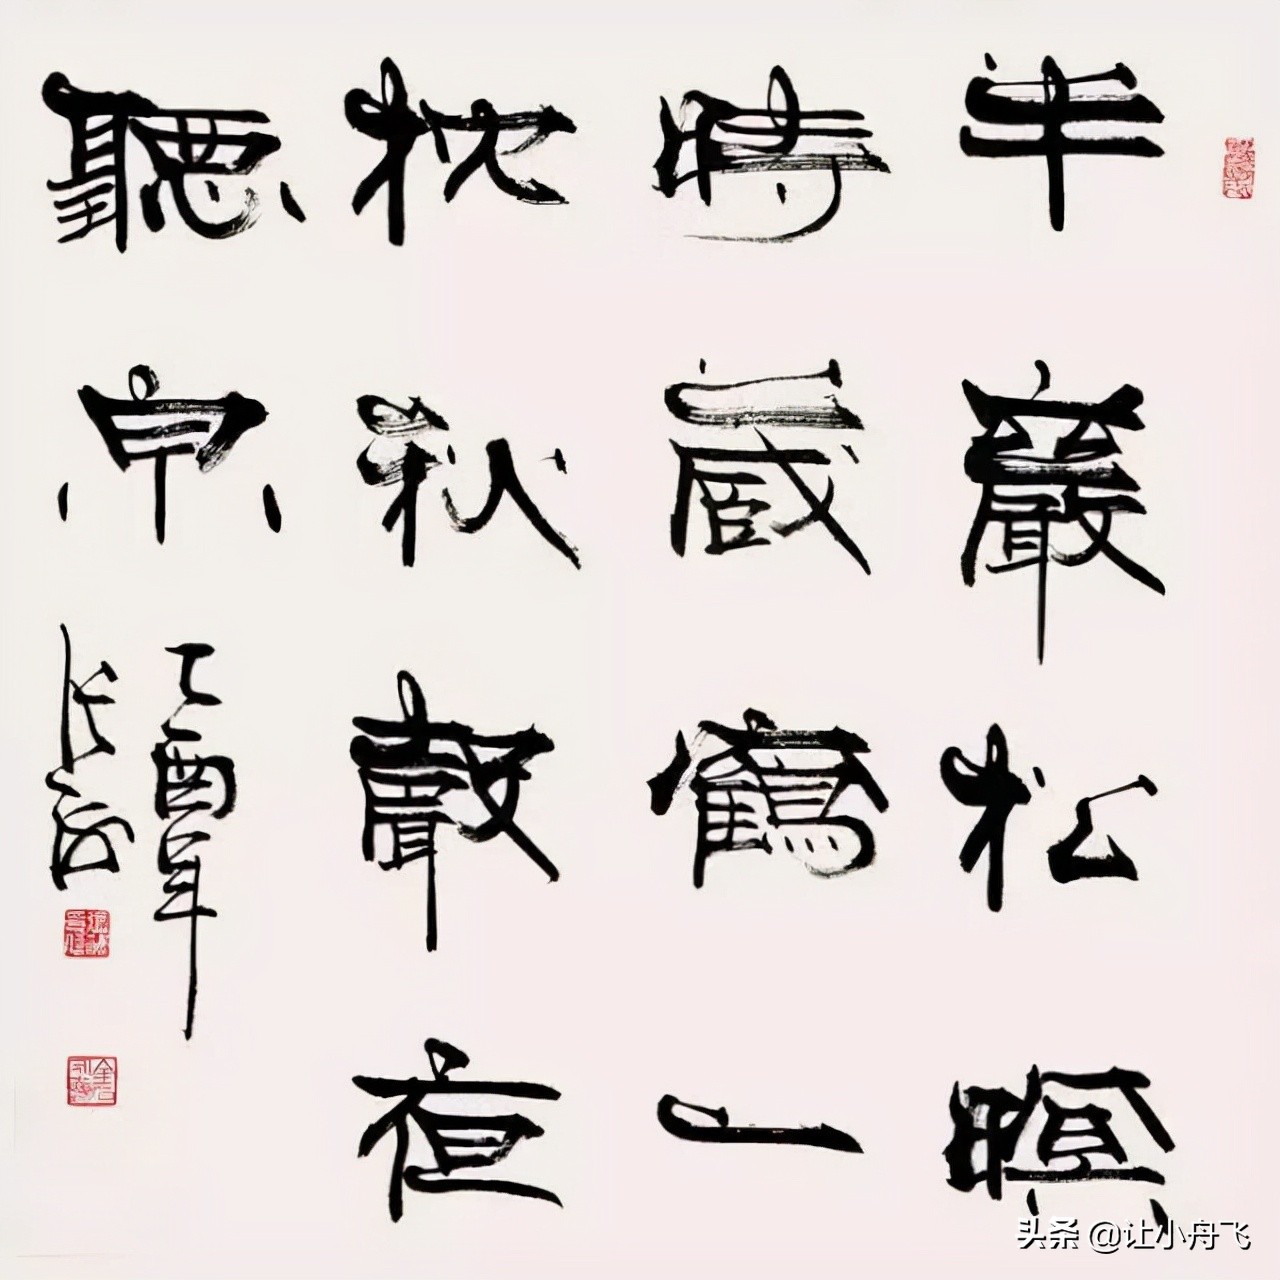 半巖松暝
時藏鶴一
枕秋聲夜
聽泉
乙酉年
张海
头条 @让小舟飞